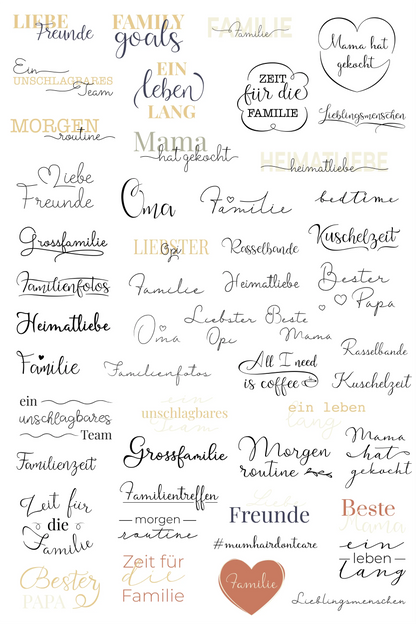 LIEBE
Freunde
FAMILY
goals
FAMILIE
Familie
Mama hat
gekocht
Ein
UNSCHLAGBARES
Team
EIN
leben
LANG
ZEIT
für die
FAMILIE
Lieblingsmenschen
MORGEN
routine
Mama
hat gekocht
HEIMATLIEBE
heimatliebe
Liebe
Freunde
Oma
Familie
bedtime
Grossfamilie
LIEBSTER
Opi
Rasselbande
Kuschelzeit
Familienfotos
Familie
Heimatliebe
Bester
Papa
Heimatliebe
Oma
Liebster
Opi
Beste
Mama
Rasselbande
Familie
Familienfotos
All I need
is coffee
Kuschelzeit
ein
unschlagbares
Team
ein
unschlagbares
Team
ein leben
lang
Familienzeit
Grossfamilie
Morgen
routine
Mama
hat
gekocht
Zeit für
die
Familie
Familientreffen
morgen
routine
Liebe
Freunde
#mumhairdontcare
Beste
Mama
ein
leben
lang
Bester
PAPA
Zeit für
die
Familie
Familie
Lieblingsmenschen